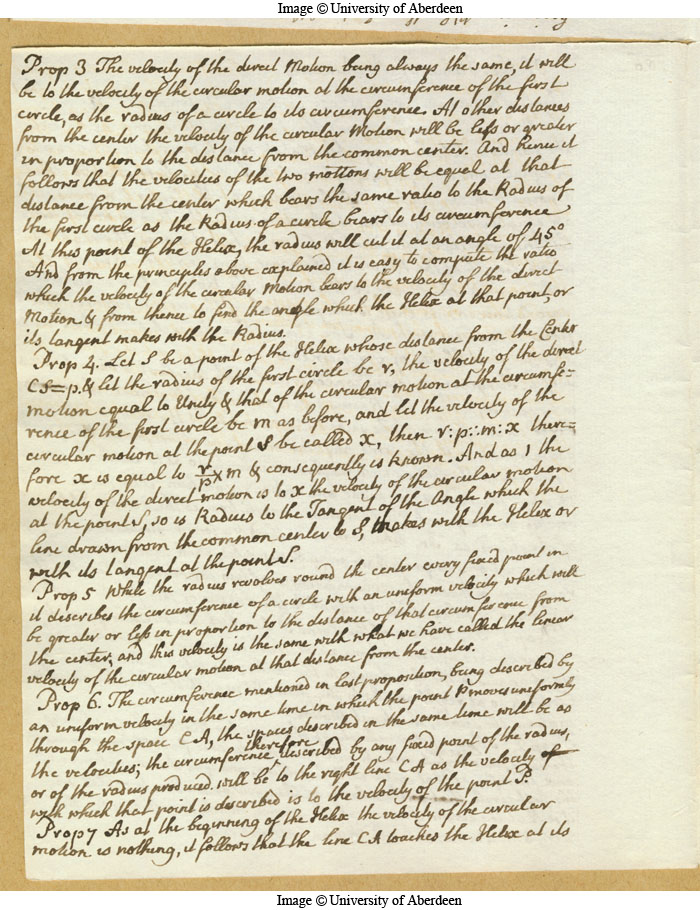 Image © University of Aberdeen
Prop 3 The velocity of the direct Motion being always the same, it will
be to the velocity of the circular motion at the circumference of the first
circle, as the radius of a circle to its circumference. At other distances
from the center the velocity of the circular Motion will be less or greater
in proportion to the distance from the common center. And hence it
follows that the velocities of the two mottons will be equal at that
distance from the center which bears the same ratio to the Radius of
the first circle as the Radius of a circle bears to its circumference
At this point of the Helix, the radius will cut it at an angle of 45°
And from the principles above explained it is easy to compute the ratio
which the velocity of the circular Motion bears to the velocity of the direct
Motion & from thence to find the angle which the Helix at that point, or
its tangent makes with the Radius.
Prop 4. Let S be a point of the Helix whose distance from the Center
CS=p. & let the radius of the first circle be r, the velocity of the direct
motion equal to Unity & that of the circular motion at the circumfe=
rence of the first circle be m as before, and let the velocity of the
circular motion at the point S be called x, then r:p::m:x there=
fore x is equal to r/p × m & consequently is known. And as 1 the
velocity of the direct motion is to x the velocity of the circular motion
at the point S, so is Radius to the Tangent of the Angle which the
line drawn from the common center to S, makes with the Helix or
with its tangent at the point S.
Prop 5 While the radius revolves round the center every fixed point in
it describes the circumference of a circle with an uniform velocity which will
be greater or less in proportion to the distance of that circumference from
the center, and this velocity is the same with what we have called the linear
velocity of the circular motion at that distance from the center.
Prop 6. The circumference mentioned in last proposition, being described by
an uniform velocity in the same time in which the point P moves uniformly
through the space CA, the spaces described in the same time will be as
the velocities; the circumference therefore described by any fixed point of the radius,
or of the radius produced, will be to the right line CA as the velocity of
with which that point is described is to the velocity of the point P.
Prop 7 As at the beginning of the Helix the velocity of the circular
motion is nothing, it follows that the line CA touches the Helix at its
Image © University of Aberdeen